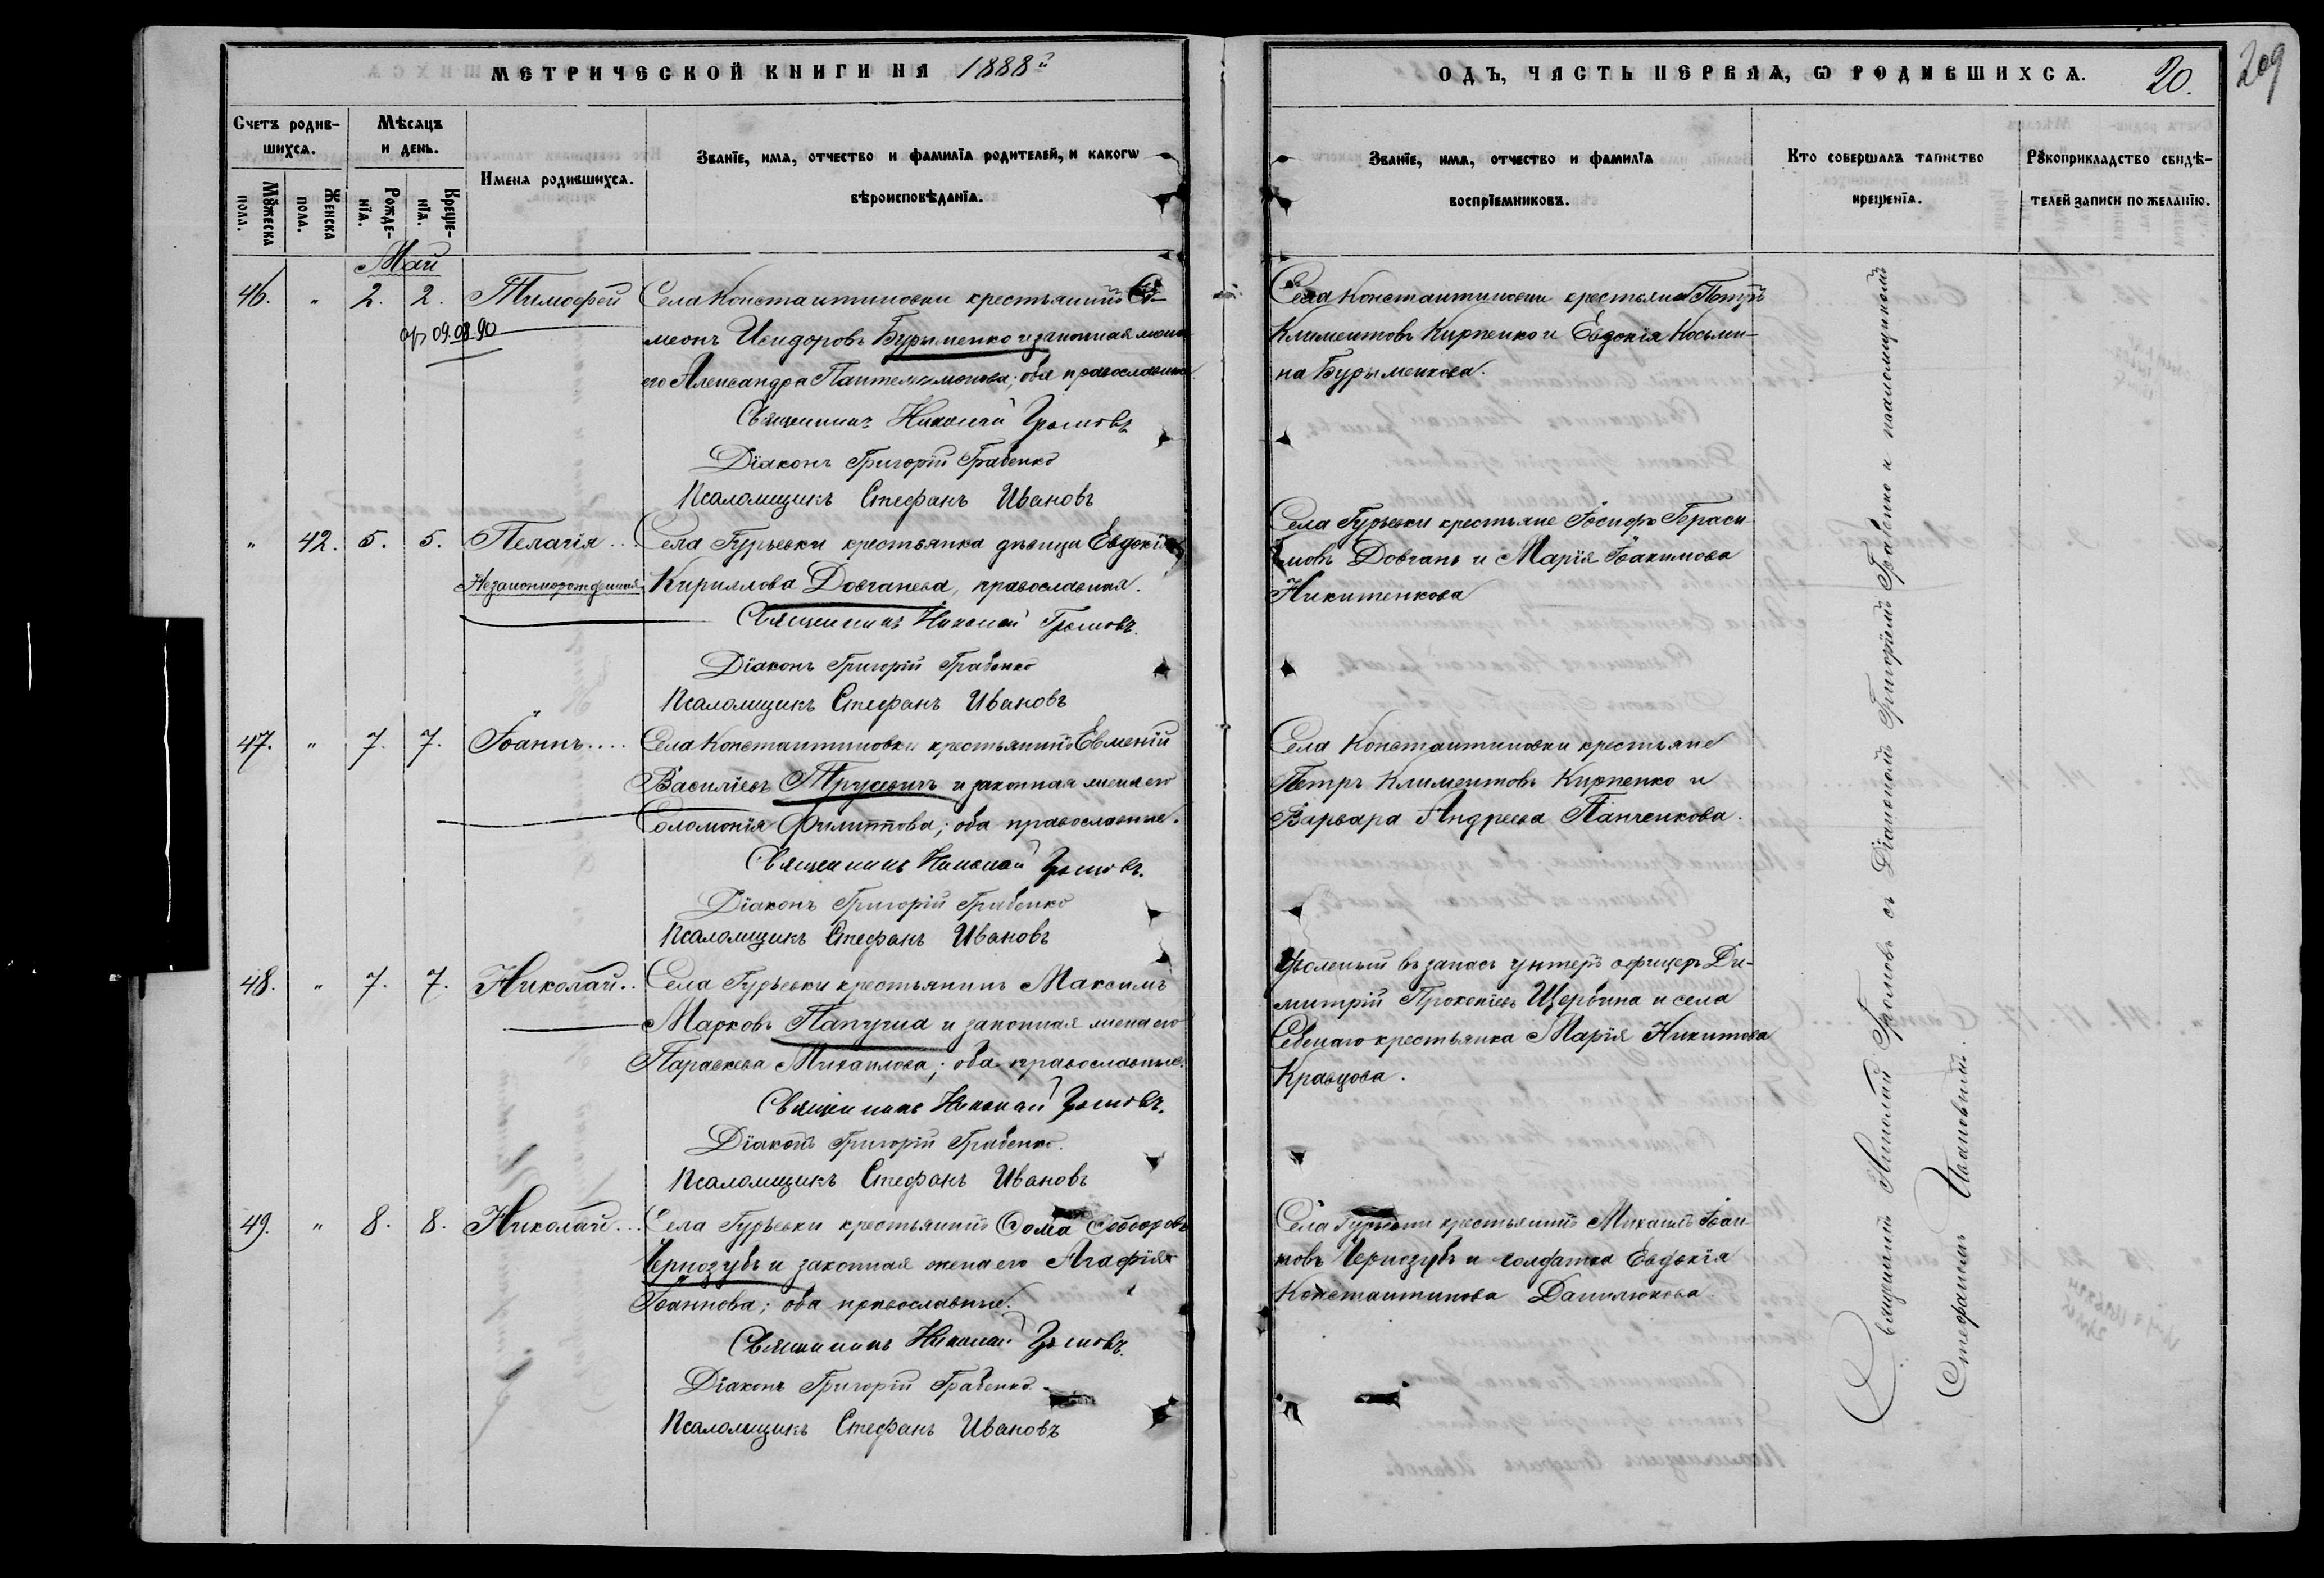 МЕТРИЧЕСКОЙ КНИГИ НА 1888й
ОДЪ, ЧАСТЬ ПЕРВАѦ, Ѡ РОДИВШИХСѦ.
20.
209
Счетъ родив-
шихсѧ.
Мѣсѧцъ
и день.
Имена родившихсѧ.
Званїе, имѧ, отчество и фамилїѧ родителей, и какогѡ
вѣроисповѣданїѧ.
Мꙋжеска
пола.
Женска
пола.
Рожде-
нїѧ.
Креще-
нїѧ.
Званїе, имѧ, отчество и фамилїѧ
воспрїемниковъ.
Кто совершалъ таинство
крещенїѧ.
Рꙋкоприкладство свидѣ-
телей записи по желанїю.
Май
46. " 2. 2. Тимофей
09.08.90
Села Константиновки крестьянинъ Си-
меонъ Исидоровъ Бурыменко и законная жена
его Александра Пантелеимонова; оба православные
Священникъ Николай Громовъ
Діаконъ Григорій Грабенко
Псаломщикъ Стефанъ Ивановъ
Села Константиновки крестьяне Петръ
Климентовъ Кирпенко и Евдокія Косьми-
на Бурыменкова.
" 42. 5. 5. Пелагія...
Незаконнорожденная
Села Гурьевки крестьянка дѣвица Евдокія
Кириллова Довганева, православная.
Священникъ Николай Громовъ.
Діаконъ Григорій Грабенко
Псаломщикъ Стефанъ Ивановъ
Села Гурьевки крестьяне Іосифъ Гераси-
мовъ Довгань и Марія Іоакимова
Никитенкова
47. " 7. 7. Іоаннъ....
Села Константиновки крестьянинъ Евменій
Василіевъ Трусевичъ и законная жена его
Соломонія Филиппова; оба православные.
Священникъ Николай Громовъ.
Діаконъ Григорій Грабенко
Псаломщикъ Стефанъ Ивановъ
Села Константиновки крестьяне
Петръ Климентовъ Кирпенко и
Варвара Андреева Панченкова.
48. " 7. 7. Николай..
Села Гурьевки крестьянинъ Максимъ
Марковъ Папуша и законная жена его
Параскева Михайлова; оба православные.
Священникъ Николай Громовъ.
Діаконъ Григорій Грабенко.
Псаломщикъ Стефанъ Ивановъ
Уволеный въ запасъ унтеръ офицеръ Ди-
митрій Прокопіевъ Щербина и села
крестьянка Марія Никитова
Кравцова.
49. " 8. 8. Николай...
Села Гурьевки крестьянинъ Ѳома Ѳеодоровъ
Чернозубъ и законная жена его Агафія
Іоаннова; оба православные.
Священникъ Николай Громовъ.
Діаконъ Григорій Грабенко.
Псаломщикъ Стефанъ Ивановъ
Села Гурьевки крестьянинъ Михаилъ Іоан-
новъ Чернозубъ и солдатка Евдокія
Константинова Данилюкова.
Священникъ Николай Громовъ съ Діакономъ Григоріемъ Грабенко и псаломщикомъ
Стефаномъ Ивановымъ.